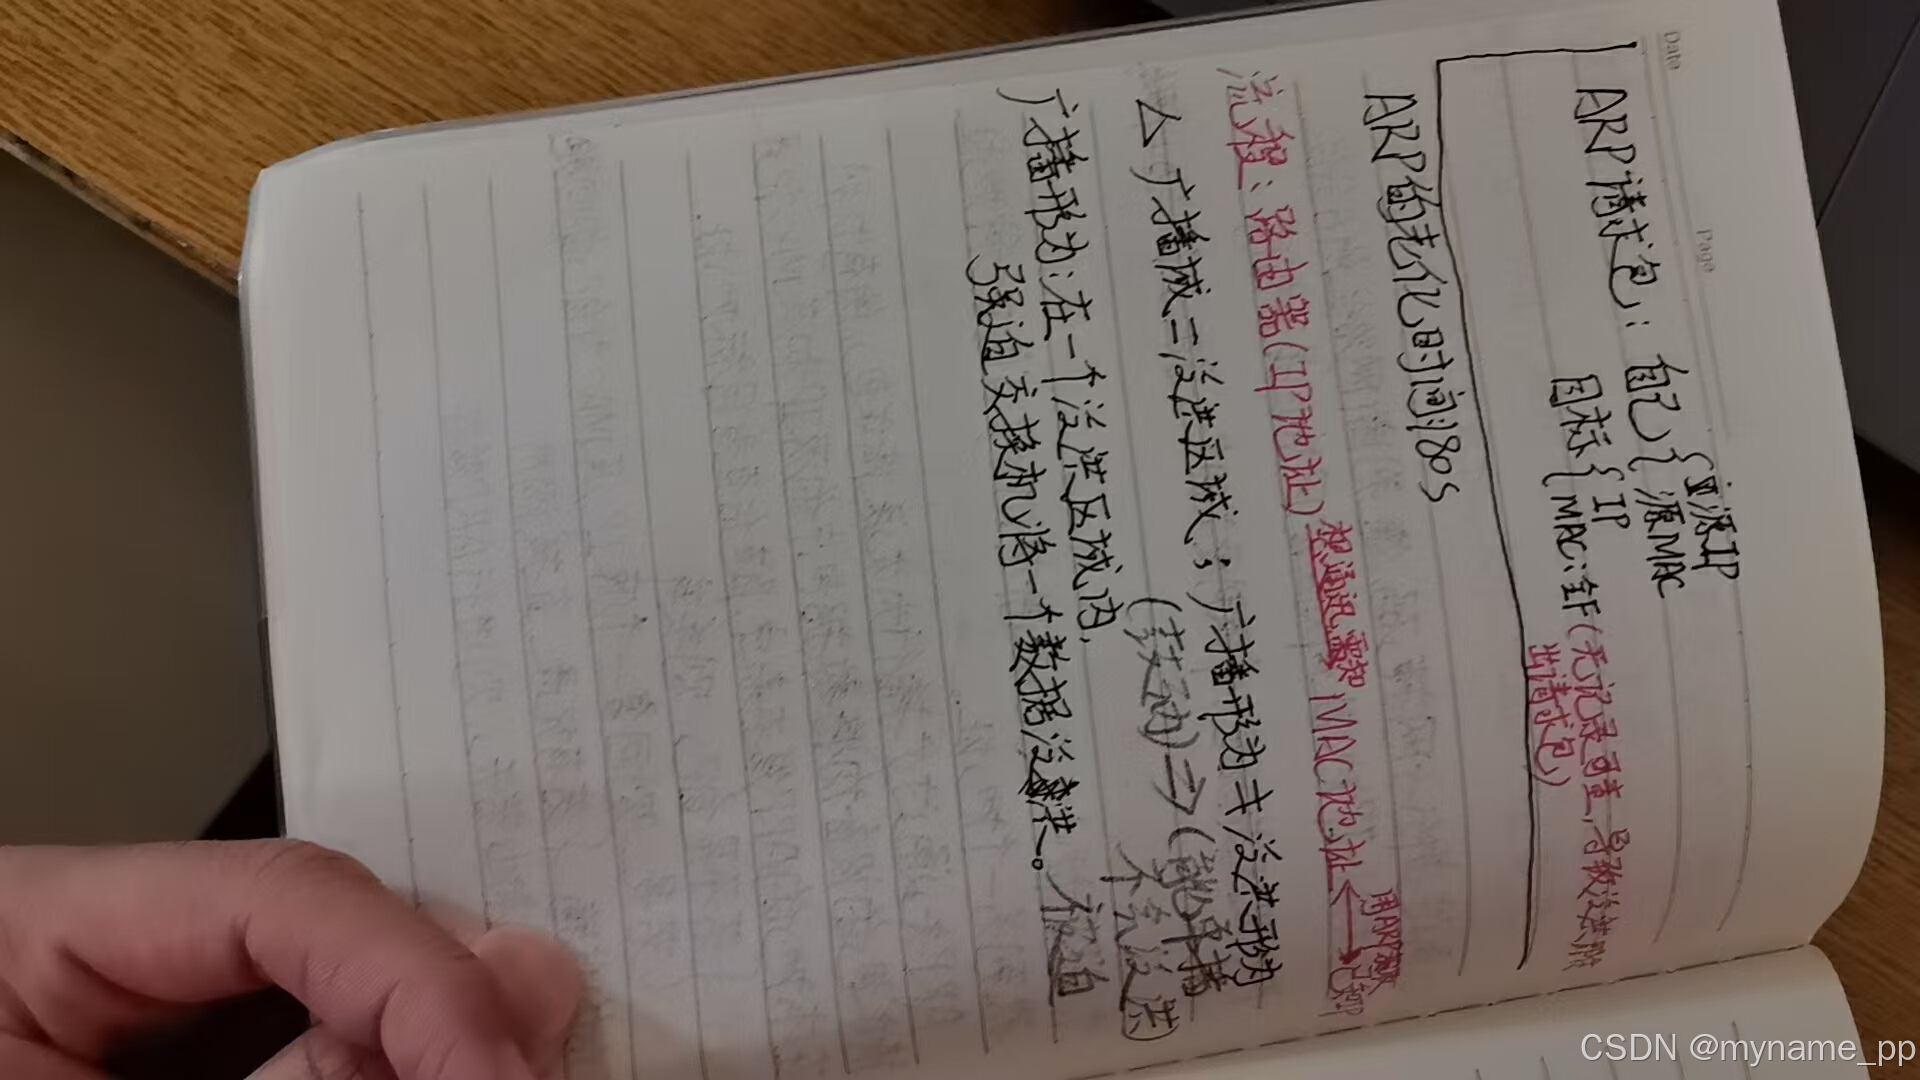 Date
Page
ARP请求包：自己{源IP
源MAC
目标{IP
MAC:全F(无记录可查,导致没法
出请求包)
ARP的老化时间180s
流程：路由器(IP地址)想通讯需知MAC地址
用ARP
已知IP
广播域=泛洪区域；广播形为≠泛洪形为
(主动)⇒(能广播
不会泛洪)
广播形为:在一个泛洪区域内,
被迫
强迫交换机将一个数据泛洪。
CSDN @myname_pp